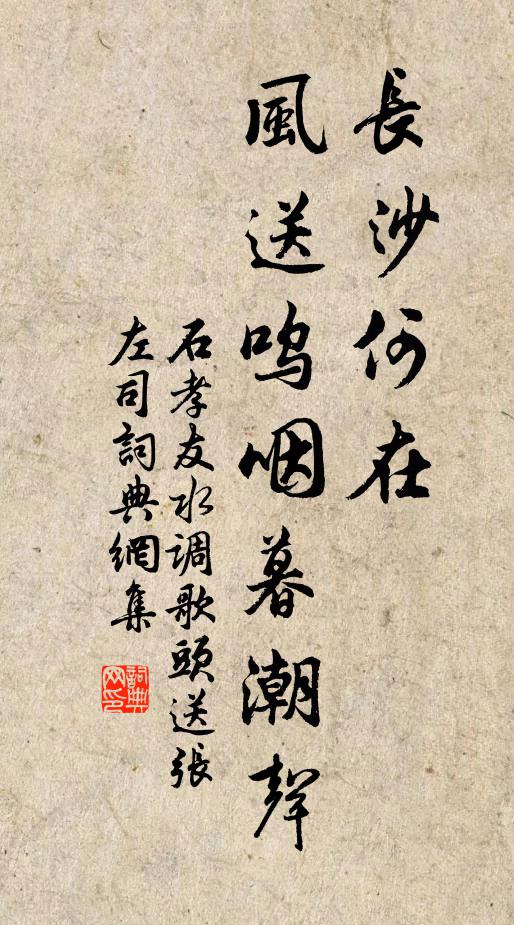 長沙何在
風送呜咽暮潮聲
石孝友水调歌頭送張
左司詞典網集
詞典网印